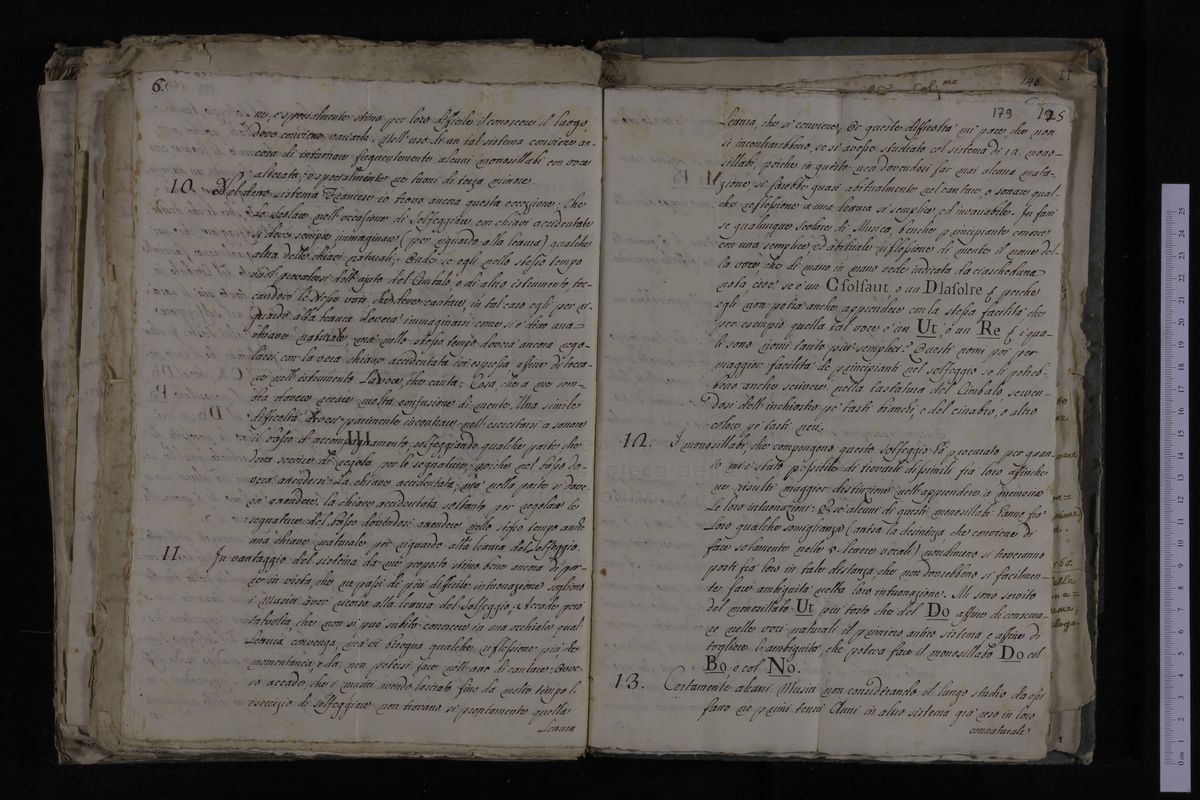 6.
ne, e specialmente stimo per loro difficile il conoscere il luogo,
dove conviene variarla. Nell' uso di un tal sistema conviene an-
cora di intonare frequentemente alcuni monosillabi con voce
alterata, e specialmente ne' tuoni di terza minore.
10. Nel detto sistema Francese io trovo ancora questa eccezione; Che
lo scolare nell' occasione di solfeggiare con chiavi accidentate
si deve sempre immaginare (per riguardo alla lettura) qualche
altra delle chiavi naturali; Onde se egli nello stesso tempo
vuol prevalersi dell' ajuto del Cimbalo, o di altro istrumento toc-
candovi le stesse voci, che deve cantare, in tal caso egli per ri-
guardo alla lettura dovrà immaginarsi come si è detto una
chiave naturale, ma nello stesso tempo dovrà ancora rego-
larsi con la vera chiave accidentata ivi espressa affine di tocca-
re nell' istrumento la voce, che canta: Cosa, che a me sem-
bra dovere recare molta confusione di mente. Una simile
difficoltà deve parimente incontrare nell' esercitarsi a sonare
il basso d' accompagnamento solfeggiando qualche parte che
deva servire di regola per le segnature; poiche nel basso do-
verà attendere la chiave accidentata; ma nella parte si dove-
rà attendere la chiave accidentata soltanto per regolar le
segnature del basso dovendosi attendere nello stesso tempo anche
una chiave naturale per riguardo alla lettura del Solfeggio.
11. In vantaggio del sistema da me proposto stimo bene ancora di por-
re in vista, che ne' passi di più difficile intonazione sogliono
i Musici aver ricorso alla lettura del Solfeggio; Accade però
talvolta, che non si può subito conoscere in una occhiata qual
Lettura convenga, ma vi bisogna qualche riflessione più che
momentanea, e da non potersi fare nell' atto di cantare; Ovve-
ro accade, che i musici avendo lasciato fino da molto tempo l'
esercizio di solfeggiare non trovano si prontamente quella
Lettura
II
148
179
125
Lettura, che si conviene, Or queste difficoltà mi pare che non
si incontrarebbono, se si avesse studiato col sistema di 12. mono-
sillabi, poiche in questo non dovendosi far mai alcuna muta-
zione si farebbe quasi abitualmente nel cantare, o sonare qual-
che riflessione a una lettura si semplice, ed invariabile. In fatti
se qualunque Scolare di Musica, benche principiante conosce
con una semplice, ed abituale riflessione di mente il nome del-
la voce, che di mano in mano vede indicata da ciascheduna
nota, cioè se è un Csolfaut o un Dlasolre E perche
egli non potrà anche apprendere con la stessa facilità che
per esempio quella tal voce è un Ut, o un Re E i qua-
li sono nomi tanto più semplici? Questi nomi poi per
maggior facilità de principianti nel solfeggio se li potreb-
bono anche scrivere nella tastatura del Cimbalo serven-
dosi dell' inchiostro pe' tasti bianchi, e del cinabro, o altro
colore pe' tasti neri.
12. I monosillabi, che compongono questo Solfeggio ho procurato per quan-
to mi è stato possibile di trovarli dissimili fra loro affinche
ne risulti maggior distinzione nell' apprendere a memoria
le loro intonazioni: E se alcuni di questi monosillabi hanno fra
loro qualche somiglianza (attesa la desinenza, che conviene di
fare solamente nelle 5. lettere vocali) nondimeno si troveranno
posti fra loro in tale distanza, che non dovrebbono si facilmen-
te fare ambiguità nella loro intonazione. Mi sono servito
del monosillabo Ut più tosto che del Do affine di conserva-
re nelle voci naturali il primiero antico sistema, e affine di
togliere l' ambiguità che poteva fare il monosillabo Do col
Bo, e col No.
13. Certamente alcuni Musici non considerando il lungo studio da essi
fatto ne' primi teneri Anni in altro sistema già reso in loro
connaturale